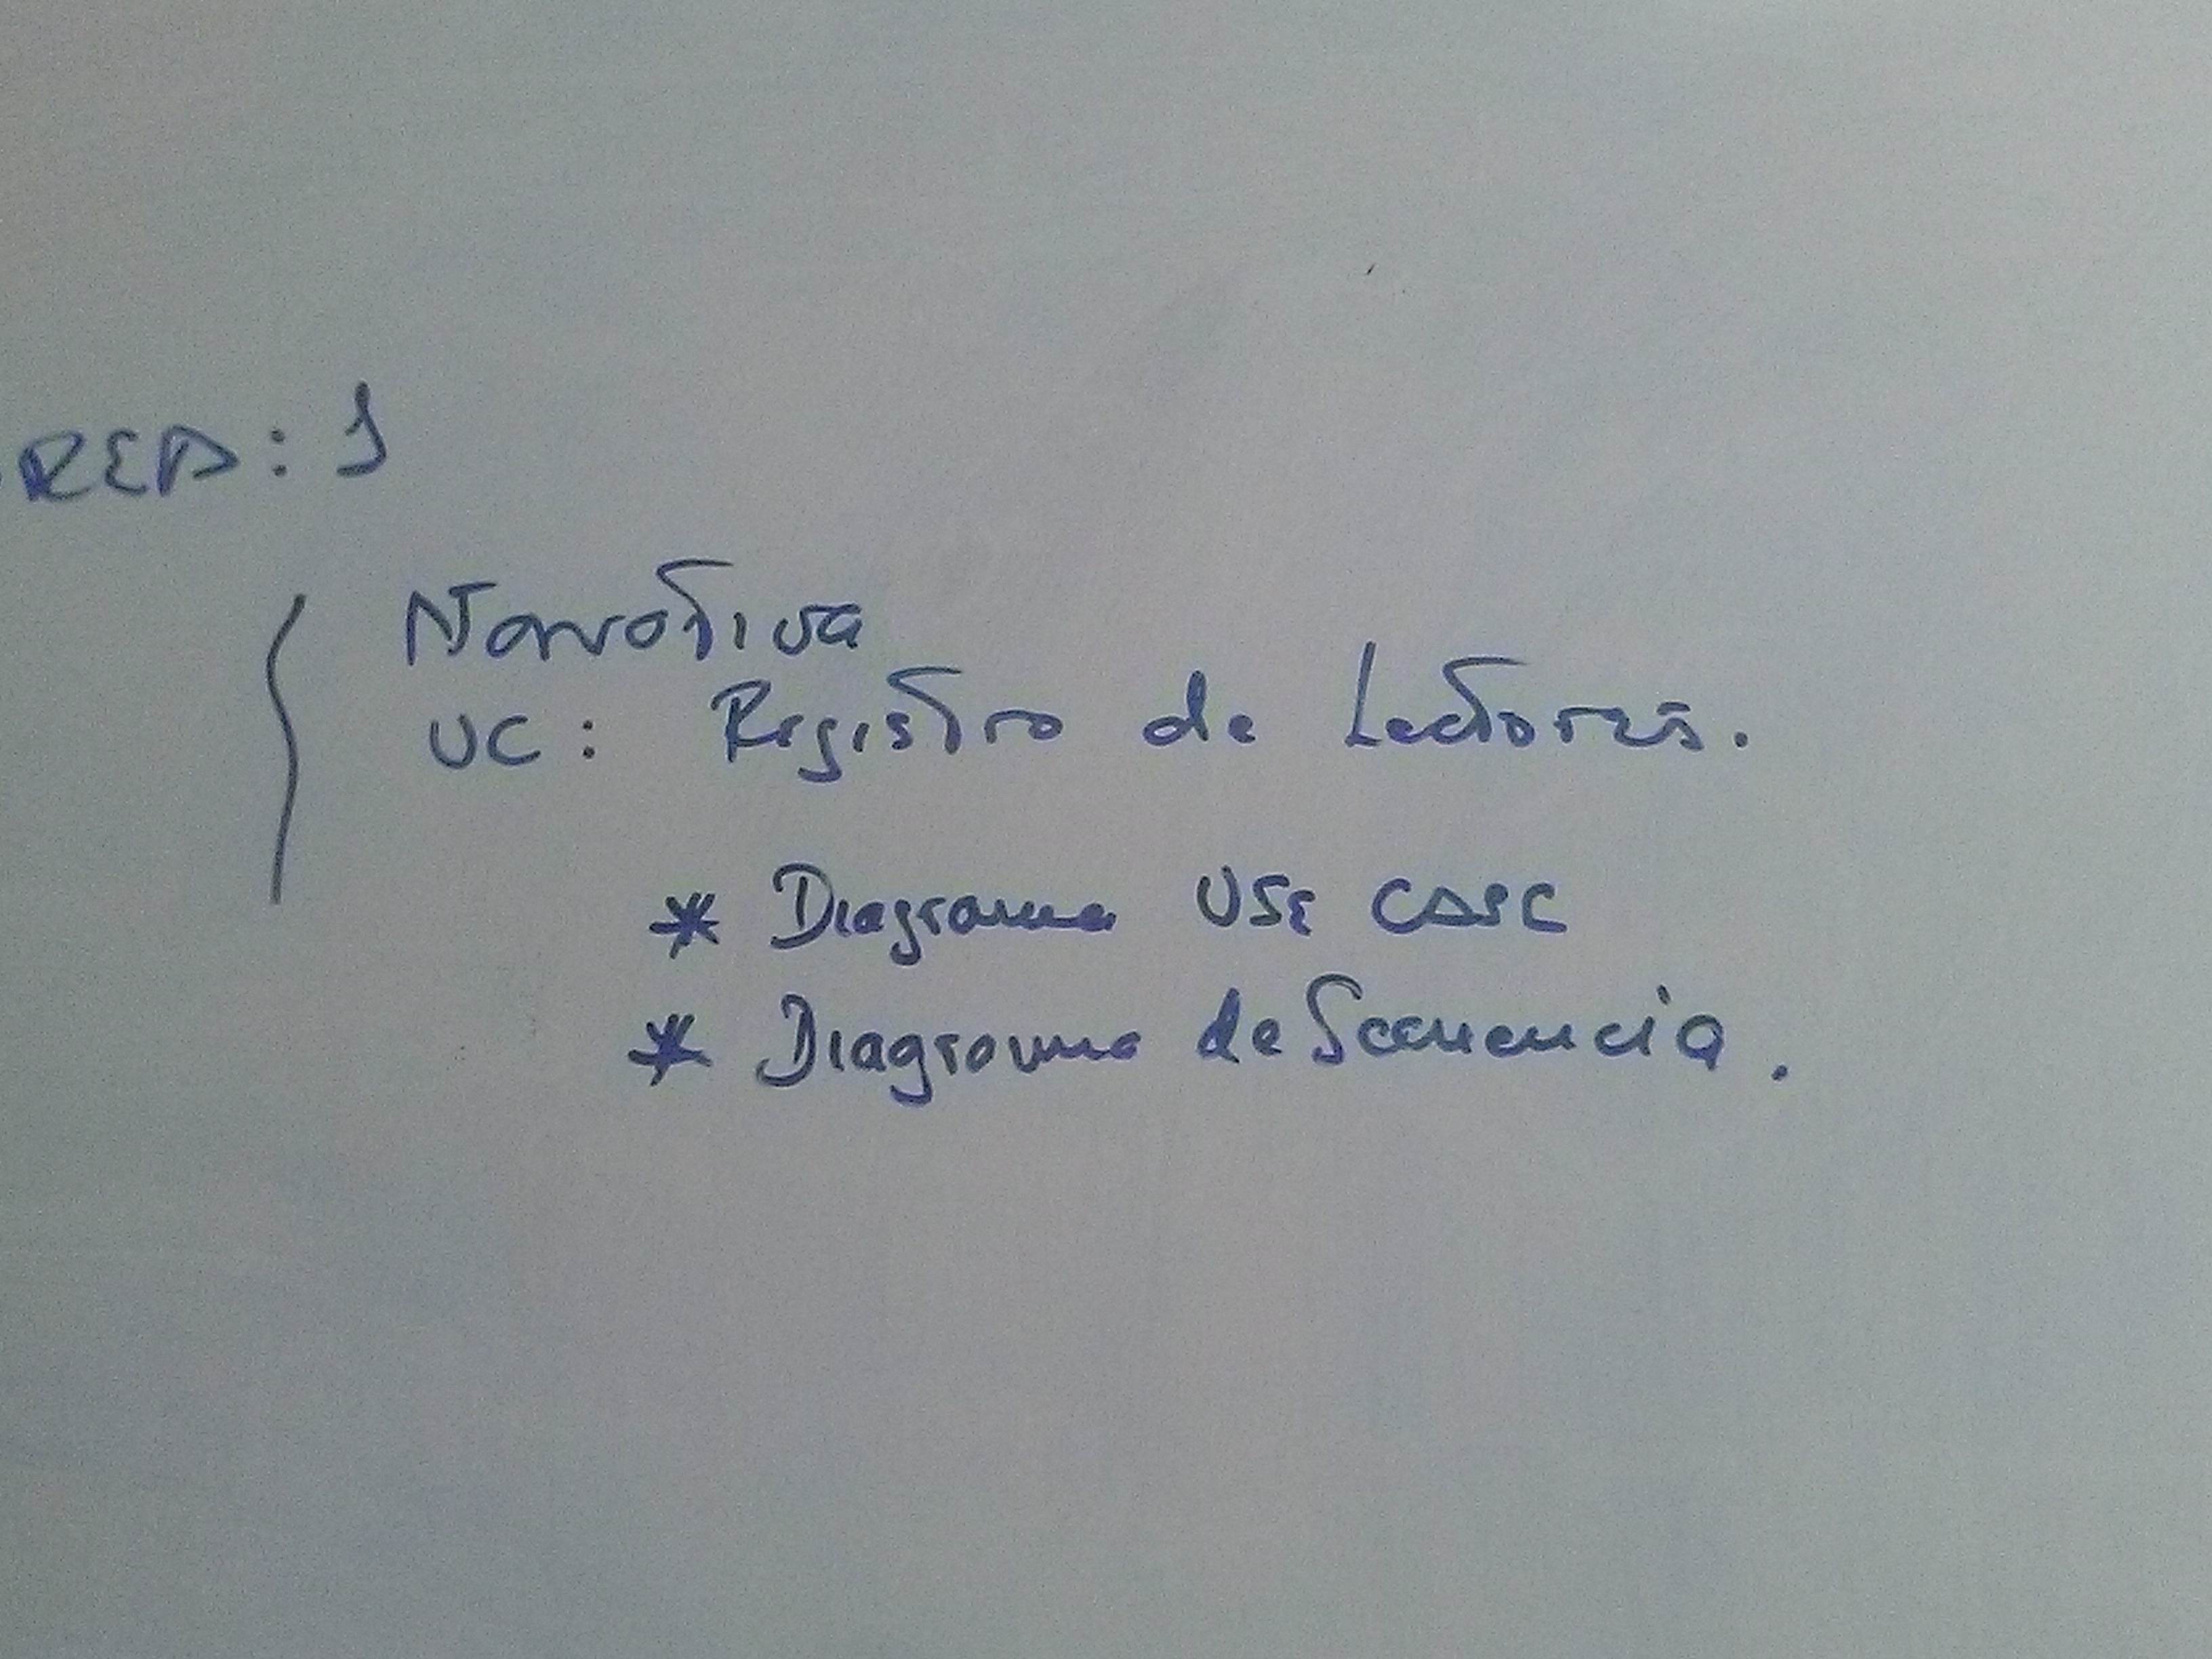 AREA: 1
Narrativa
UC: Registro de Lectores.
* Diagrama USE CASE
* Diagrama de Secuencia.